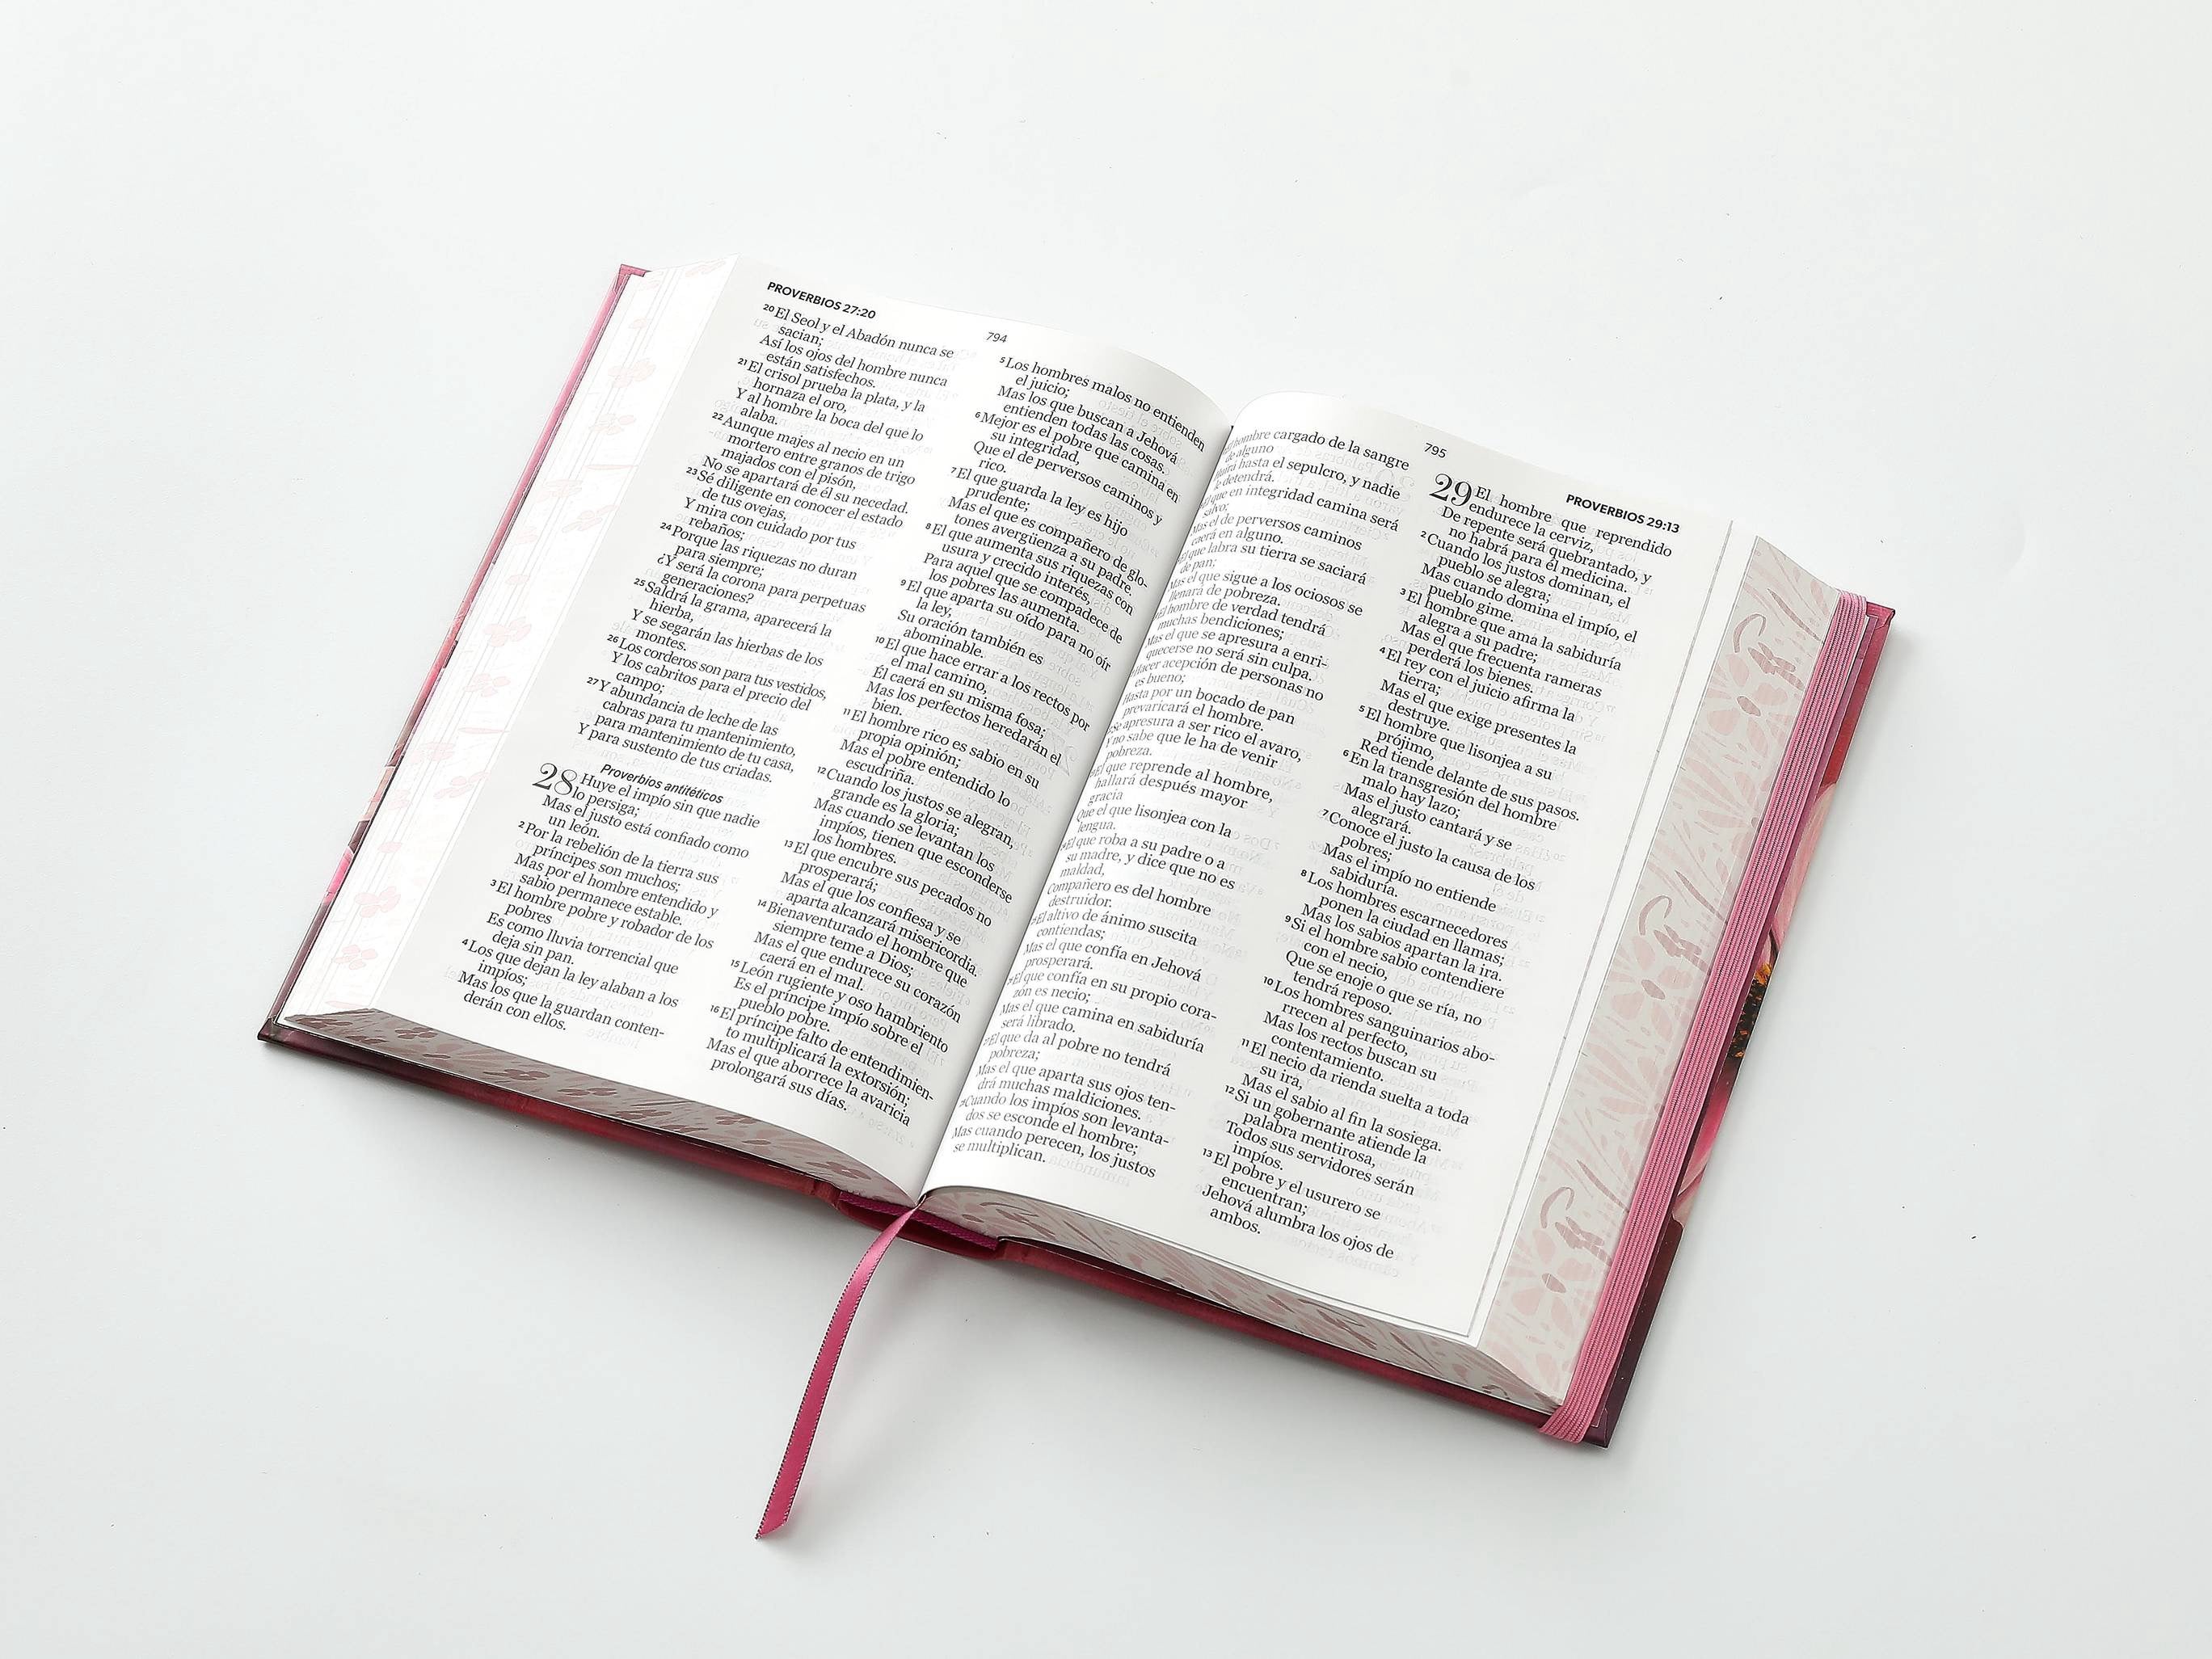 PROVERBIOS 27:20
794
20 El Seol y el Abadón nunca se
sacian;
Así los ojos del hombre nunca
están satisfechos.
21 El crisol prueba la plata, y la
hornaza el oro,
Y al hombre la boca del que lo
alaba.
22 Aunque majes al necio en un
mortero entre granos de trigo
majados con el pisón,
No se apartará de él su necedad.
23 Sé diligente en conocer el estado
de tus ovejas,
Y mira con cuidado por tus
rebaños;
24 Porque las riquezas no duran
para siempre;
¿Y será la corona para perpetuas
generaciones?
25 Saldrá la grama, aparecerá la
hierba,
Y se segarán las hierbas de los
montes.
26 Los corderos son para tus vestidos,
Y los cabritos para el precio del
campo;
27 Y abundancia de leche de las
cabras para tu mantenimiento,
para mantenimiento de tu casa,
Y para sustento de tus criadas.
Proverbios antitéticos
28 Huye el impío sin que nadie
lo persiga;
Mas el justo está confiado como
un león.
2 Por la rebelión de la tierra sus
príncipes son muchos;
Mas por el hombre entendido y
sabio permanece estable.
3 El hombre pobre y robador de los
pobres
Es como lluvia torrencial que
deja sin pan.
4 Los que dejan la ley alaban a los
impíos;
Mas los que la guardan conten-
derán con ellos.
5 Los hombres malos no entienden
el juicio;
Mas los que buscan a Jehová
entienden todas las cosas.
6 Mejor es el pobre que camina en
su integridad,
Que el de perversos caminos y
rico.
7 El que guarda la ley es hijo
prudente;
Mas el que es compañero de glo-
tones avergüenza a su padre.
8 El que aumenta sus riquezas con
usura y crecido interés,
Para aquel que se compadece de
los pobres las aumenta.
9 El que aparta su oído para no oír
la ley,
Su oración también es
abominable.
10 El que hace errar a los rectos por
el mal camino,
Él caerá en su misma fosa;
Mas los perfectos heredarán el
bien.
11 El hombre rico es sabio en su
propia opinión;
Mas el pobre entendido lo
escudriña.
12 Cuando los justos se alegran,
grande es la gloria;
Mas cuando se levantan los
impíos, tienen que esconderse
los hombres.
13 El que encubre sus pecados no
prosperará;
Mas el que los confiesa y se
aparta alcanzará misericordia.
14 Bienaventurado el hombre que
siempre teme a Dios;
Mas el que endurece su corazón
caerá en el mal.
15 León rugiente y oso hambriento
Es el príncipe impío sobre el
pueblo pobre.
16 El príncipe falto de entendimien-
to multiplicará la extorsión;
Mas el que aborrece la avaricia
prolongará sus días.
795
PROVERBIOS 29:13
hombre cargado de la sangre
de alguno
hasta el sepulcro, y nadie
le detendrá.
que en integridad camina será
salvo;
Mas el de perversos caminos
caerá en alguno.
El que labra su tierra se saciará
de pan;
Mas el que sigue a los ociosos se
llenará de pobreza.
El hombre de verdad tendrá
muchas bendiciones;
Mas el que se apresura a enri-
quecerse no será sin culpa.
Hacer acepción de personas no
es bueno;
Hasta por un bocado de pan
prevaricará el hombre.
Se apresura a ser rico el avaro,
Y no sabe que le ha de venir
pobreza.
El que reprende al hombre,
hallará después mayor
gracia
Que el que lisonjea con la
lengua.
El que roba a su padre o a
su madre, y dice que no es
maldad,
Compañero es del hombre
destruidor.
El altivo de ánimo suscita
contiendas;
Mas el que confía en Jehová
prosperará.
El que confía en su propio cora-
zón es necio;
Mas el que camina en sabiduría
será librado.
El que da al pobre no tendrá
pobreza;
Mas el que aparta sus ojos ten-
drá muchas maldiciones.
Cuando los impíos son levanta-
dos se esconde el hombre;
Mas cuando perecen, los justos
se multiplican.
29 El hombre que reprendido
endurece la cerviz,
De repente será quebrantado, y
no habrá para él medicina.
2 Cuando los justos dominan, el
pueblo se alegra;
Mas cuando domina el impío, el
pueblo gime.
3 El hombre que ama la sabiduría
alegra a su padre;
Mas el que frecuenta rameras
perderá los bienes.
4 El rey con el juicio afirma la
tierra;
Mas el que exige presentes la
destruye.
5 El hombre que lisonjea a su
prójimo,
Red tiende delante de sus pasos.
6 En la transgresión del hombre
malo hay lazo;
Mas el justo cantará y se
alegrará.
7 Conoce el justo la causa de los
pobres;
Mas el impío no entiende
sabiduría.
8 Los hombres escarnecedores
ponen la ciudad en llamas;
Mas los sabios apartan la ira.
9 Si el hombre sabio contendiere
con el necio,
Que se enoje o que se ría, no
tendrá reposo.
10 Los hombres sanguinarios abo-
rrecen al perfecto,
Mas los rectos buscan su
contentamiento.
11 El necio da rienda suelta a toda
su ira,
Mas el sabio al fin la sosiega.
12 Si un gobernante atiende la
palabra mentirosa,
Todos sus servidores serán
impíos.
13 El pobre y el usurero se
encuentran;
Jehová alumbra los ojos de
ambos.